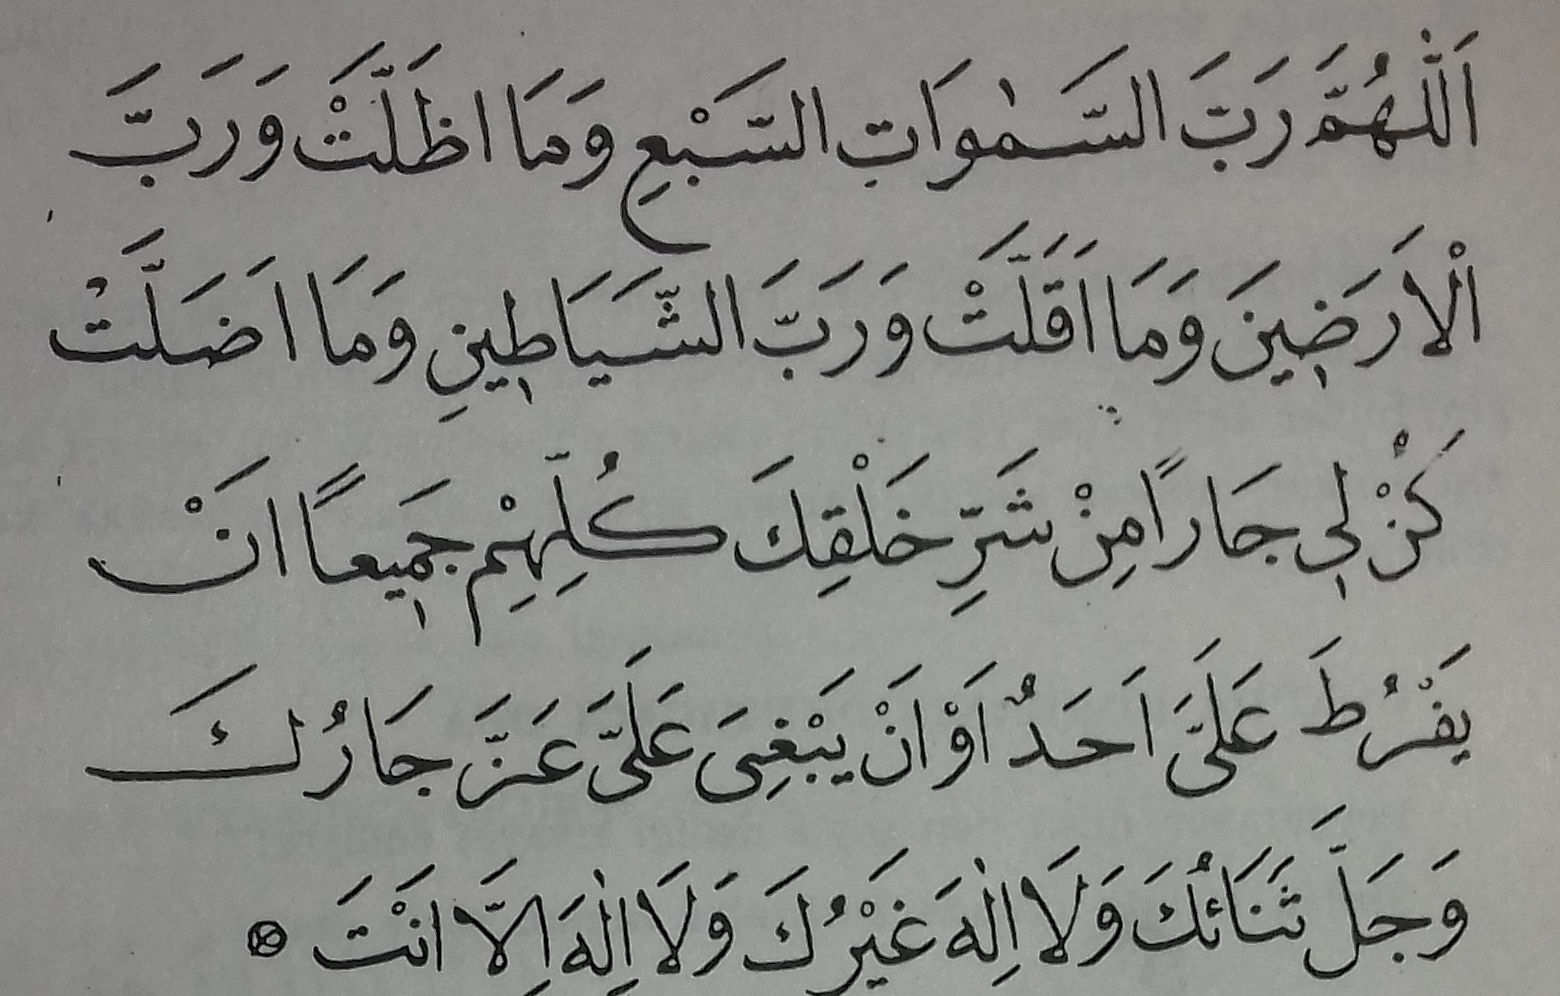 اَللّٰهُمَّ رَبَّ السَّمٰوَاتِ السَّبْعِ وَمَا اظَلَّتْ وَرَبَّ
الْاَرَضِينَ وَمَا اَقَلَّتْ وَرَبَّ الشَّيَاطِينِ وَمَا اَضَلَّتْ
كُنْ لِى جَارًا مِنْ شَرِّ خَلْقِكَ كُلِّهِمْ جَمِيعًا انَْ
يَفْرُطَ عَلَىَّ اَحَدٌ اَوْ اَنْ يَبْغِىَ عَلَىَّ عَزَّ جَارُكَ
وَجَلَّ ثَنَائُكَ وَلَا اِلٰهَ غَيْرُكَ وَلَا اِلٰهَ اِلَّا انَْتَ